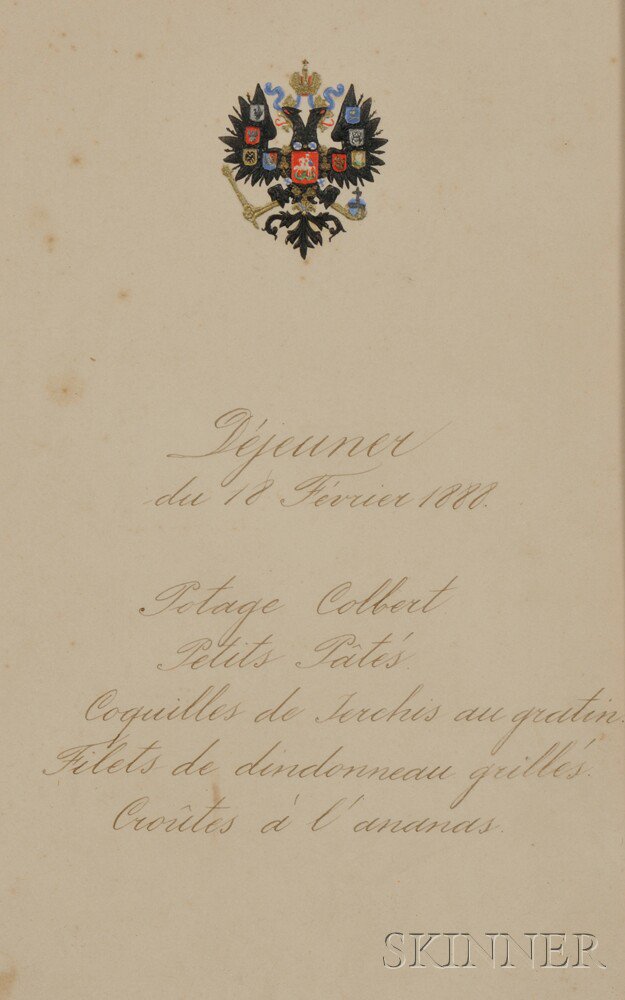 Déjeuner
du 18 Février 1888.
Potage Colbert
Petits Pâtés.
Coquilles de Ierchis au gratin.
Filets de dindonneau grillés.
Croûtes à l'ananas.
SKINNER